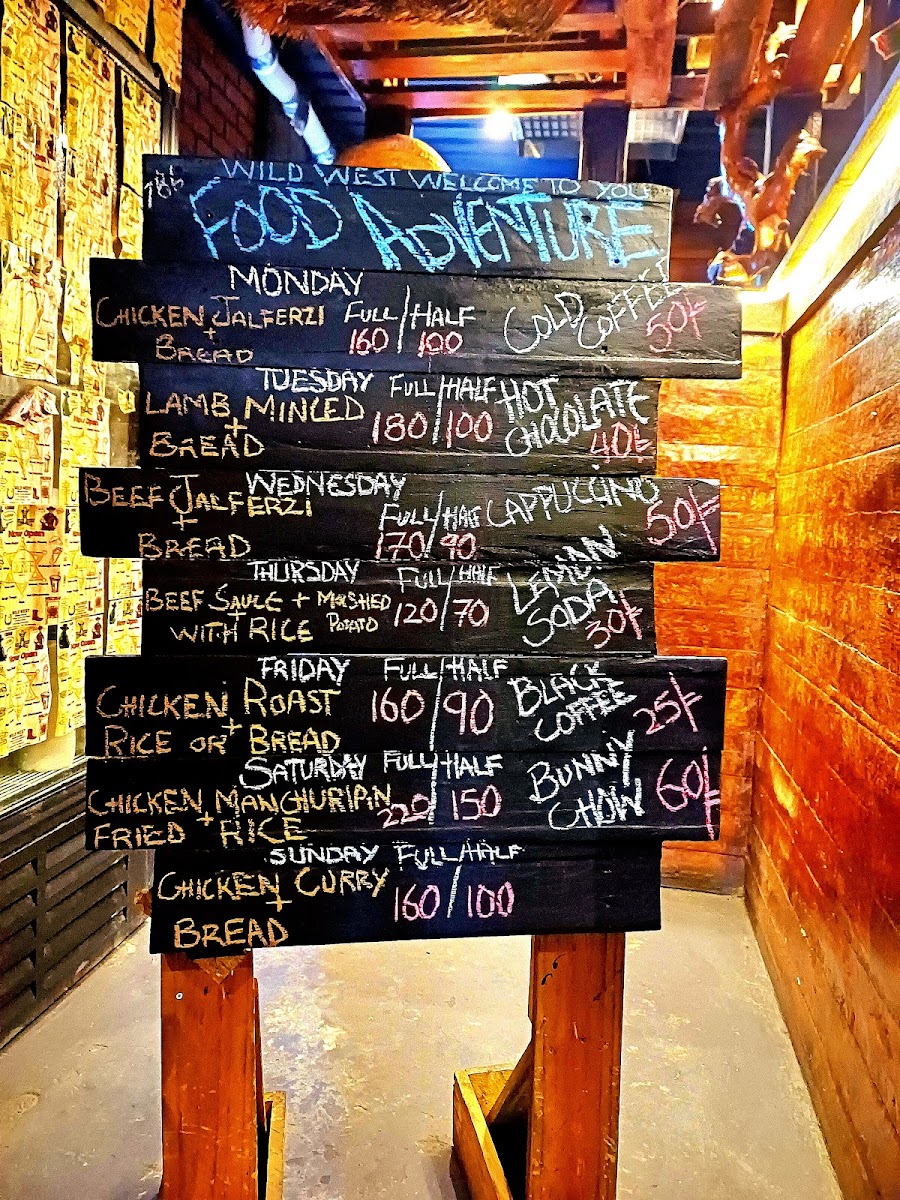 WILD WEST WELCOME TO YOU
FOOD ADVENTURE
MONDAY
CHICKEN JALFERZI
+
BREAD
FULL/HALF
160/100
COLD
COFFEE
50/-
TUESDAY
LAMB MINCED
+
BREAD
FULL/HALF
180/100
HOT
CHOCOLATE
40/-
WEDNESDAY
BEEF JALFERZI
+
BREAD
FULL/HALF
170/90
CAPPUCCINO
50/-
THURSDAY
BEEF SAUCE + MASHED
WITH RICE POTATO
FULL/HALF
120/70
LEMON
SODA
30/-
FRIDAY
CHICKEN ROAST
+
RICE OR BREAD
FULL/HALF
160/90
BLACK
COFFEE
25/-
SATURDAY
CHICKEN MANCHURIAN
+
FRIED RICE
FULL/HALF
220/150
BUNNY
CHOW
60/-
SUNDAY
CHICKEN CURRY
+
BREAD
FULL/HALF
160/100